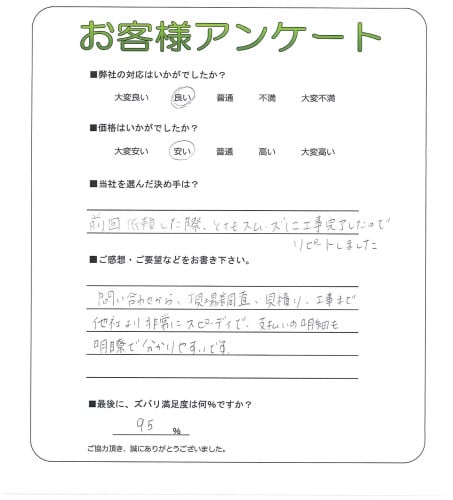 お客様アンケート
■弊社の対応はいかがでしたか？
大変良い 良い 普通 不満 大変不満
■価格はいかがでしたか？
大変安い 安い 普通 高い 大変高い
■当社を選んだ決め手は？
前回依頼した際、とてもスムーズに工事完了したので
リピートしました
■ご感想・ご要望などをお書き下さい。
問い合わせから、現場調査、見積り、工事まで
他社より非常にスピーディで、支払いの明細も
明瞭で分かりやすいです。
■最後に、ズバリ満足度は何％ですか？
95 ％
ご協力頂き、誠にありがとうございました。